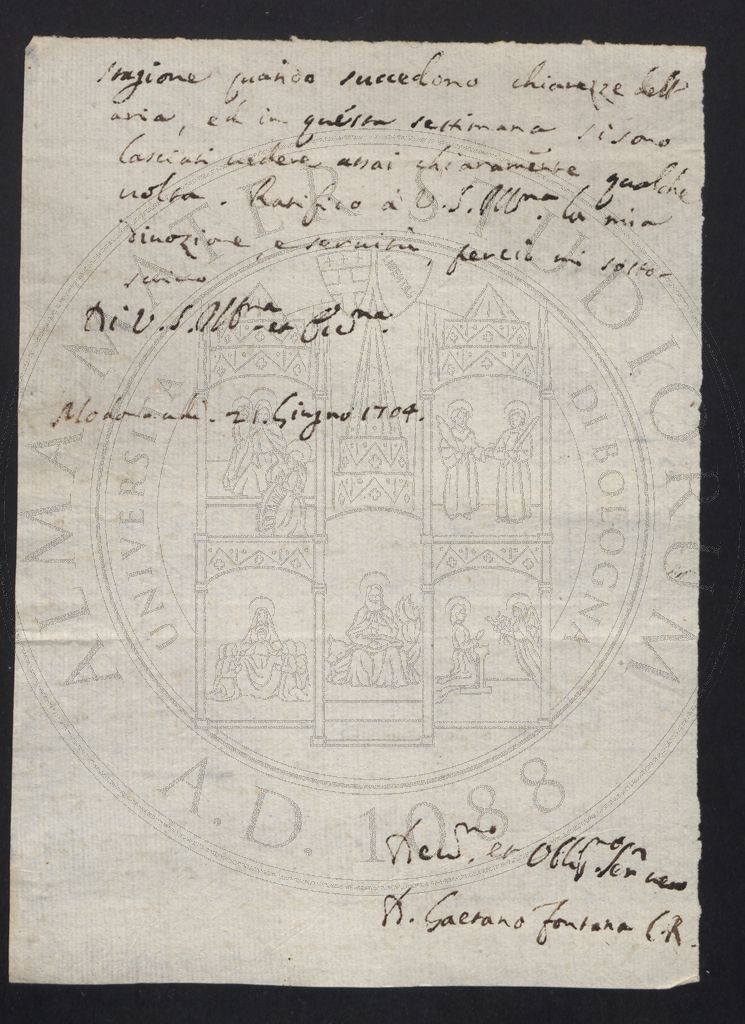 stagione quando succedono chiarezze dell'
aria, ed in questa settimana si sono
lasciati vedere assai chiaramente qualche
volta. Ratifico à V. S. Illma. la mia
divozione, e servitù, perciò mi sotto-
scrivo
Di V. S. Illma. et
21. Giugno 1704.
et Obligmo
D. Gaetano Fontana C. R.
ALMA MATER STUDIORUM
UNIVERSITÀ DI BOLOGNA
A.D. 1088